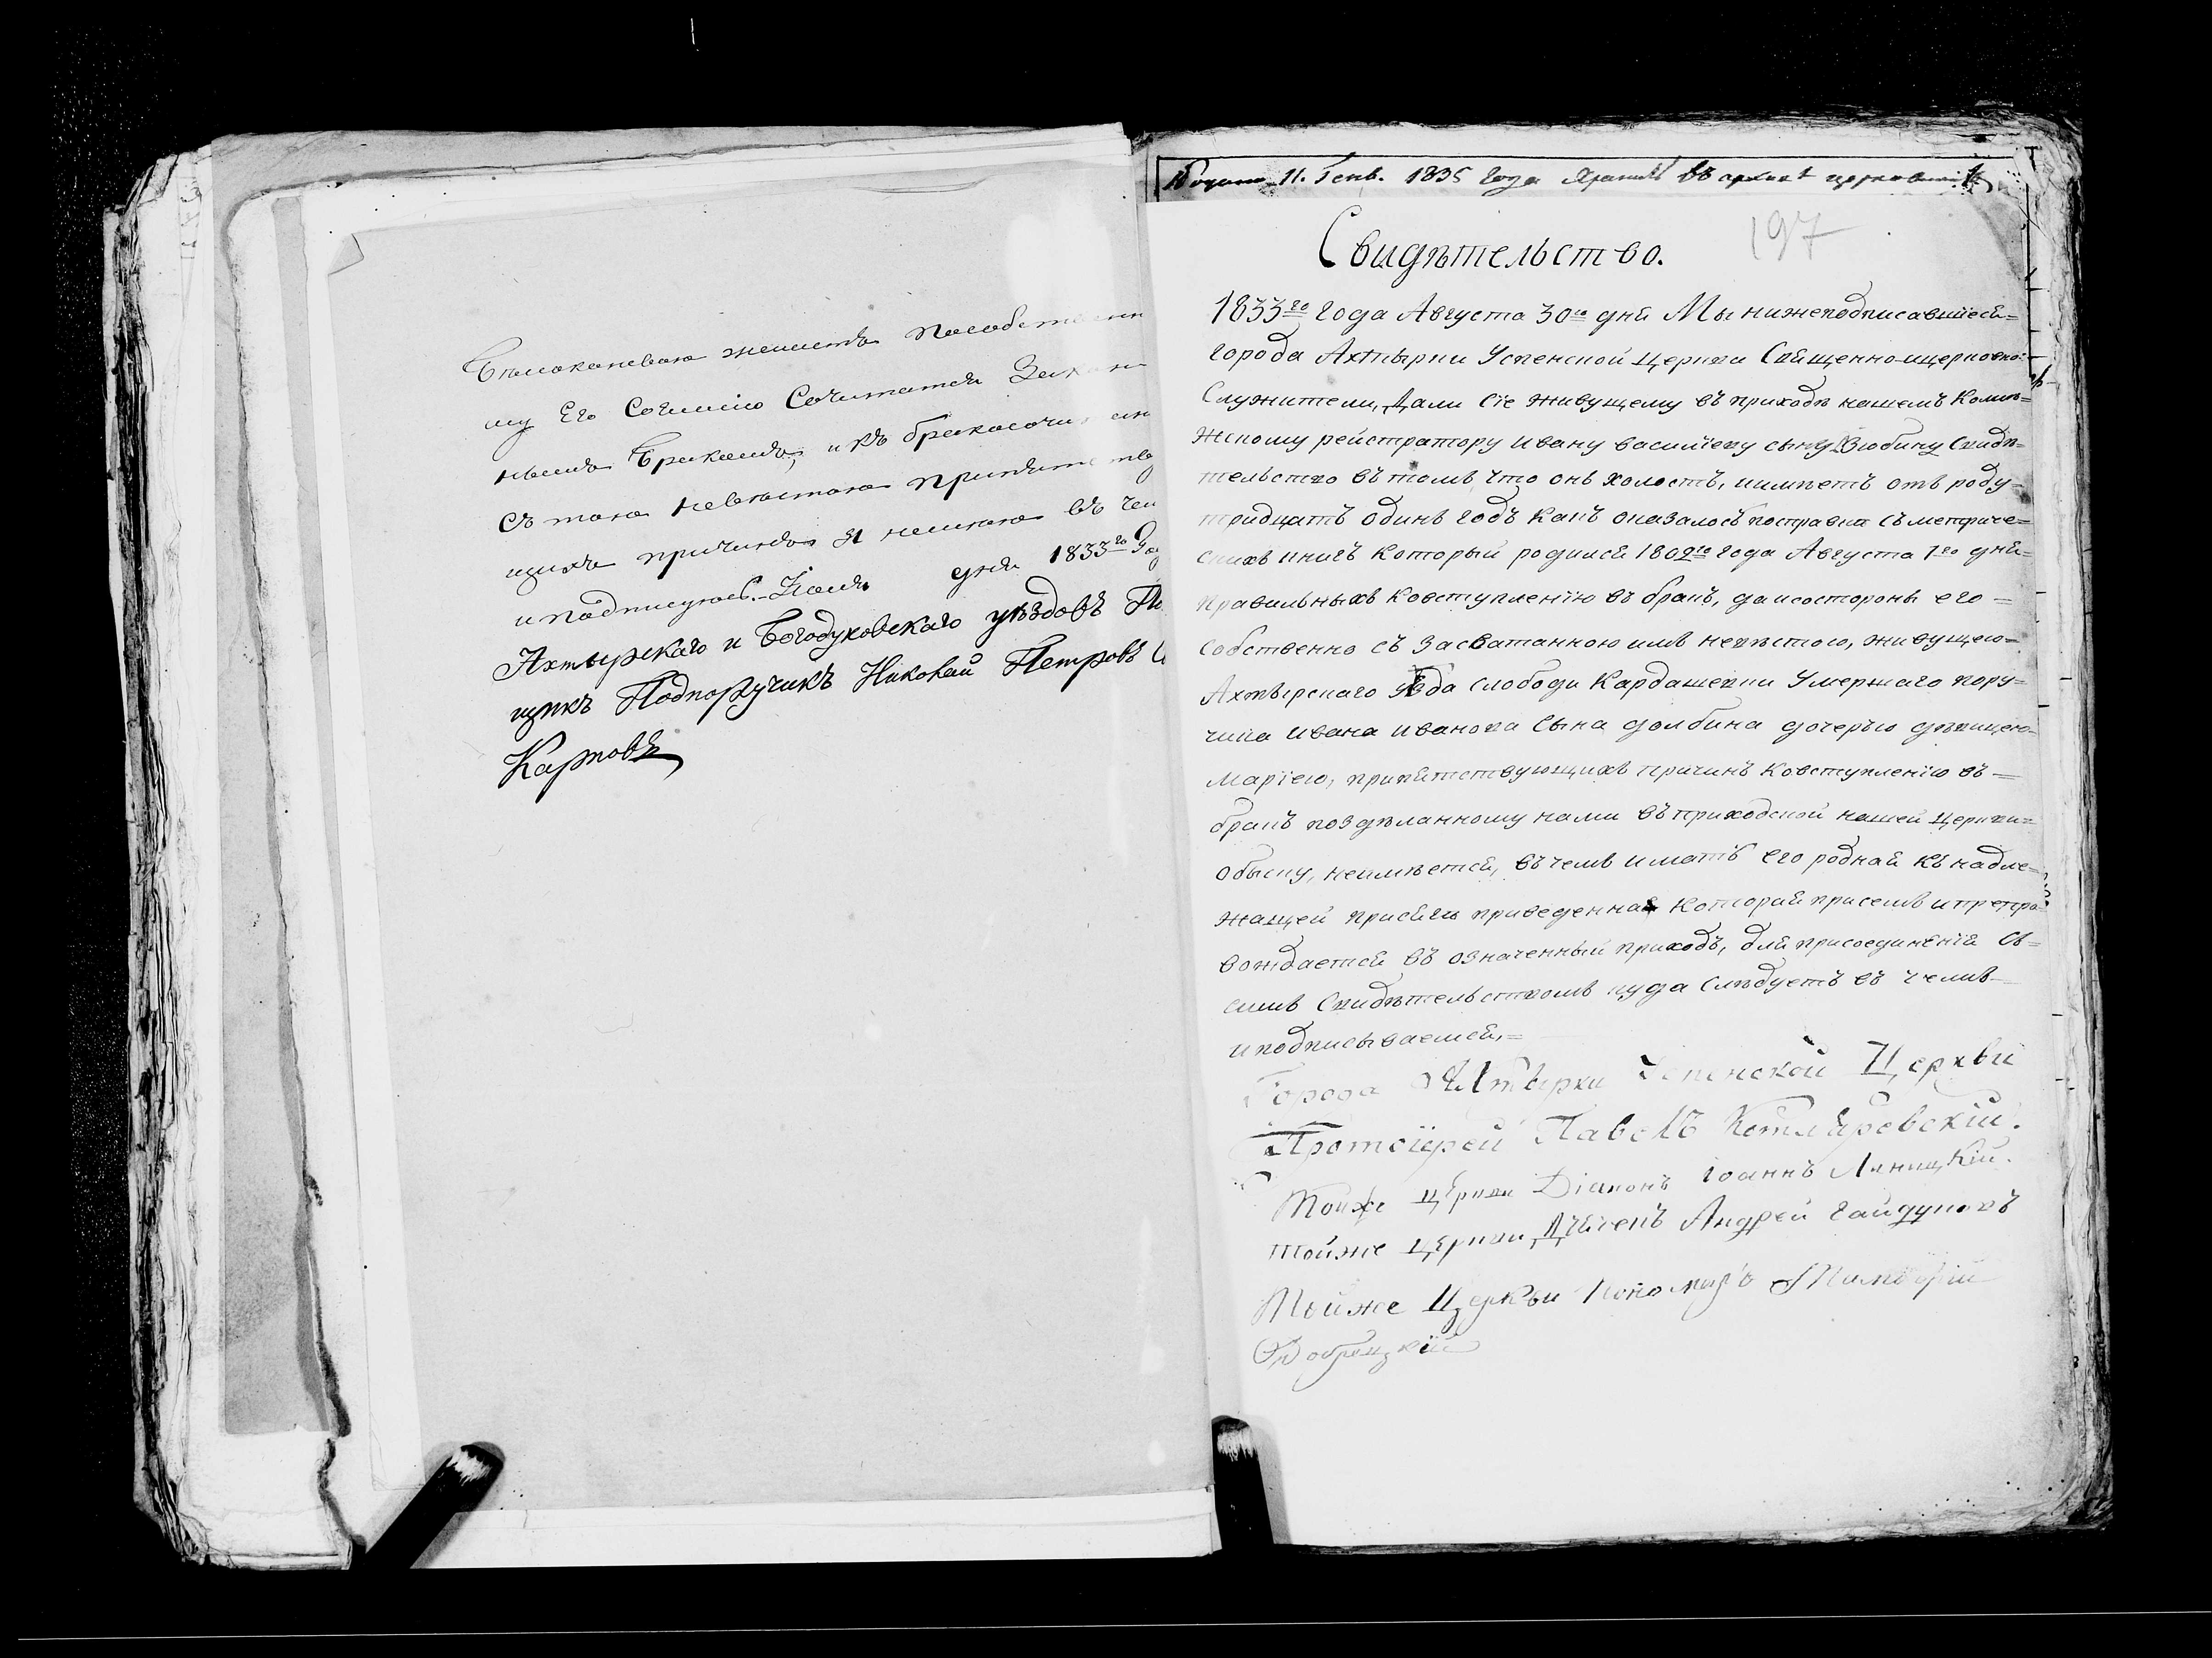 желаетъ пособственно
му Его Согласію Сочитатся Закон
нымъ Бракомъ, и къ бракосочи
съ тою невестою препятству
ющихъ причинъ я неимею въ чем
и подписуюсь. дня 1833го Год
Ахтырскаго и Богодуховскаго уѣздовъ По
щикъ Подпоручикъ Николай Петровъ
Карповъ
11. Генв. 1835 года въ архивѣ церковной
197
Свидѣтельство.
1833го года Августа 30го дня Мы нижеподписавшіеся=
города Ахтырки Успенской Церкви Священно-ицерковно=
Служители, Дали сіе живущему въ приходѣ нашемъ Колле=
жскому рейстратору Ивану Василіеву сыну Зюбину Свидѣ=
тельство въ томъ что онъ холостъ, иимѣетъ отъ роду=
тридцать одинъ годъ какъ оказалось посправки съ метриче=
скихъ книгъ который родился 1802го года Августа 1го дня=
правильныхъ ковступленію въ бракъ, да исостороны его=
собственно съ засватанною имъ невѣстою, живущею=
Ахтырскаго уѣзда слободи Кардашевки Умершаго пору=
чика Ивана Иванова Сына Долбина дочерью дѣвицею
Маріею, препятствующихъ причинъ ковступленію въ=
бракъ поздѣланному нами въ приходской нашей Церкви=
обыску, неимѣется, въ чемъ и мать его родная къ надле=
жащей присягѣ приведенная которая присемъ ипрепро=
вождается въ означенный приходъ, для присоединенія съ=
симъ Свидѣтельствомъ куда слѣдуетъ въ чемъ
иподписываемся,=
Города Ахтырки Успенской Церкви
Протоіерей Павелъ Котляревскій.
Тойже Церкви Діаконъ Іоаннъ
Тойже Церкви Дячекъ Андрей Гайдуковъ
Тойже Церкви Пономарь